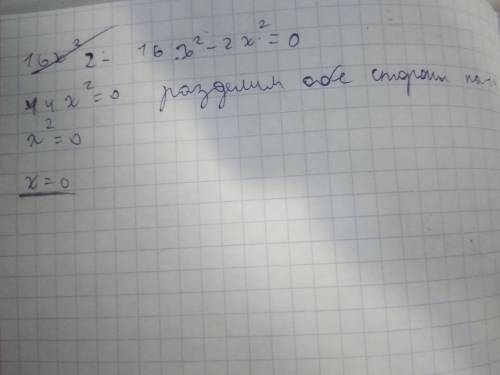 16x² 2- 16x²-2x²=0
14x²=0 разделим обе стороны на
x²=0
x=0